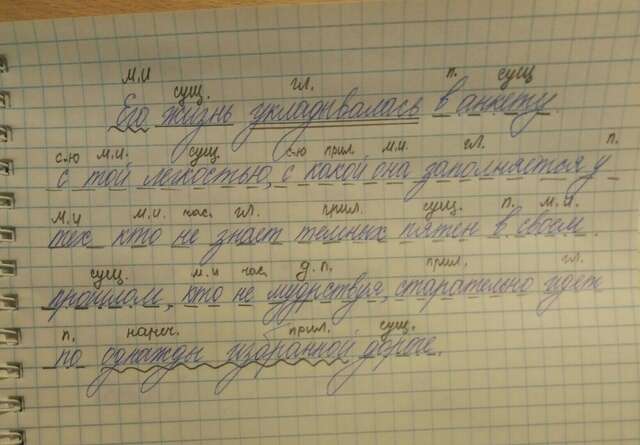 м.и сущ. гл. п. сущ
Его жизнь укладывалась в анкету
с.ю м.и. сущ. с.ю прил. м.и. гл. п.
с той легкостью, с какой она заполняется у
м.и м.и. час. гл. прил. сущ. п. м.и.
тех кто не знает темных пятен в своем
сущ. м.и час. д.п. прил. гл.
прошлом, кто не мудрствуя, старательно идет
п. нареч. прил. сущ.
по однажды избранной дороге.